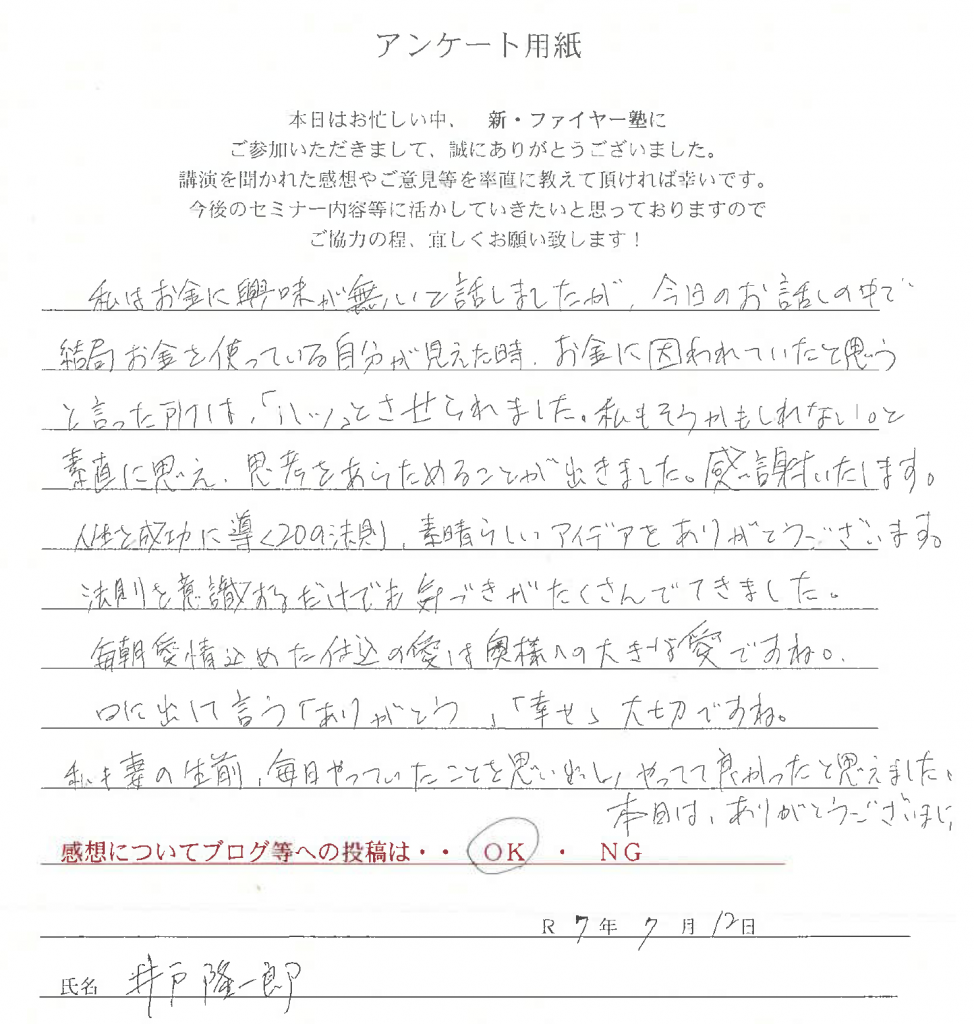 アンケート用紙
本日はお忙しい中、 新・ファイヤー塾に
ご参加いただきまして、誠にありがとうございました。
講演を聞かれた感想やご意見等を率直に教えて頂ければ幸いです。
今後のセミナー内容等に活かしていきたいと思っておりますので
ご協力の程、宜しくお願い致します！
私はお金に興味が無いて話しましたが、今日のお話しの中で
結局お金を使っている自分が見えた時、お金に因われていたと思う
と言った所は、「ハッ」とさせられました。私もそうかもしれない。と
素直に思え、思考をあらためることが出きました。感謝いたします。
人生を成功に導く20の法則、素晴らしいアイデアをありがとうございます。
法則を意識するだけでも気づきがたくさんでてきました。
毎朝愛情込めた仕込の愛は奥様への大きな愛ですね。
口に出して言う「ありがとう」「幸せ」大切ですね。
私も妻の生前、毎日やっていたことを思い出し、やってて良かったと思えました、
本日は、ありがとうございまし
感想についてブログ等への投稿は・・ OK ・ NG
R 7年 7月 12日
氏名 井戸隆一郎